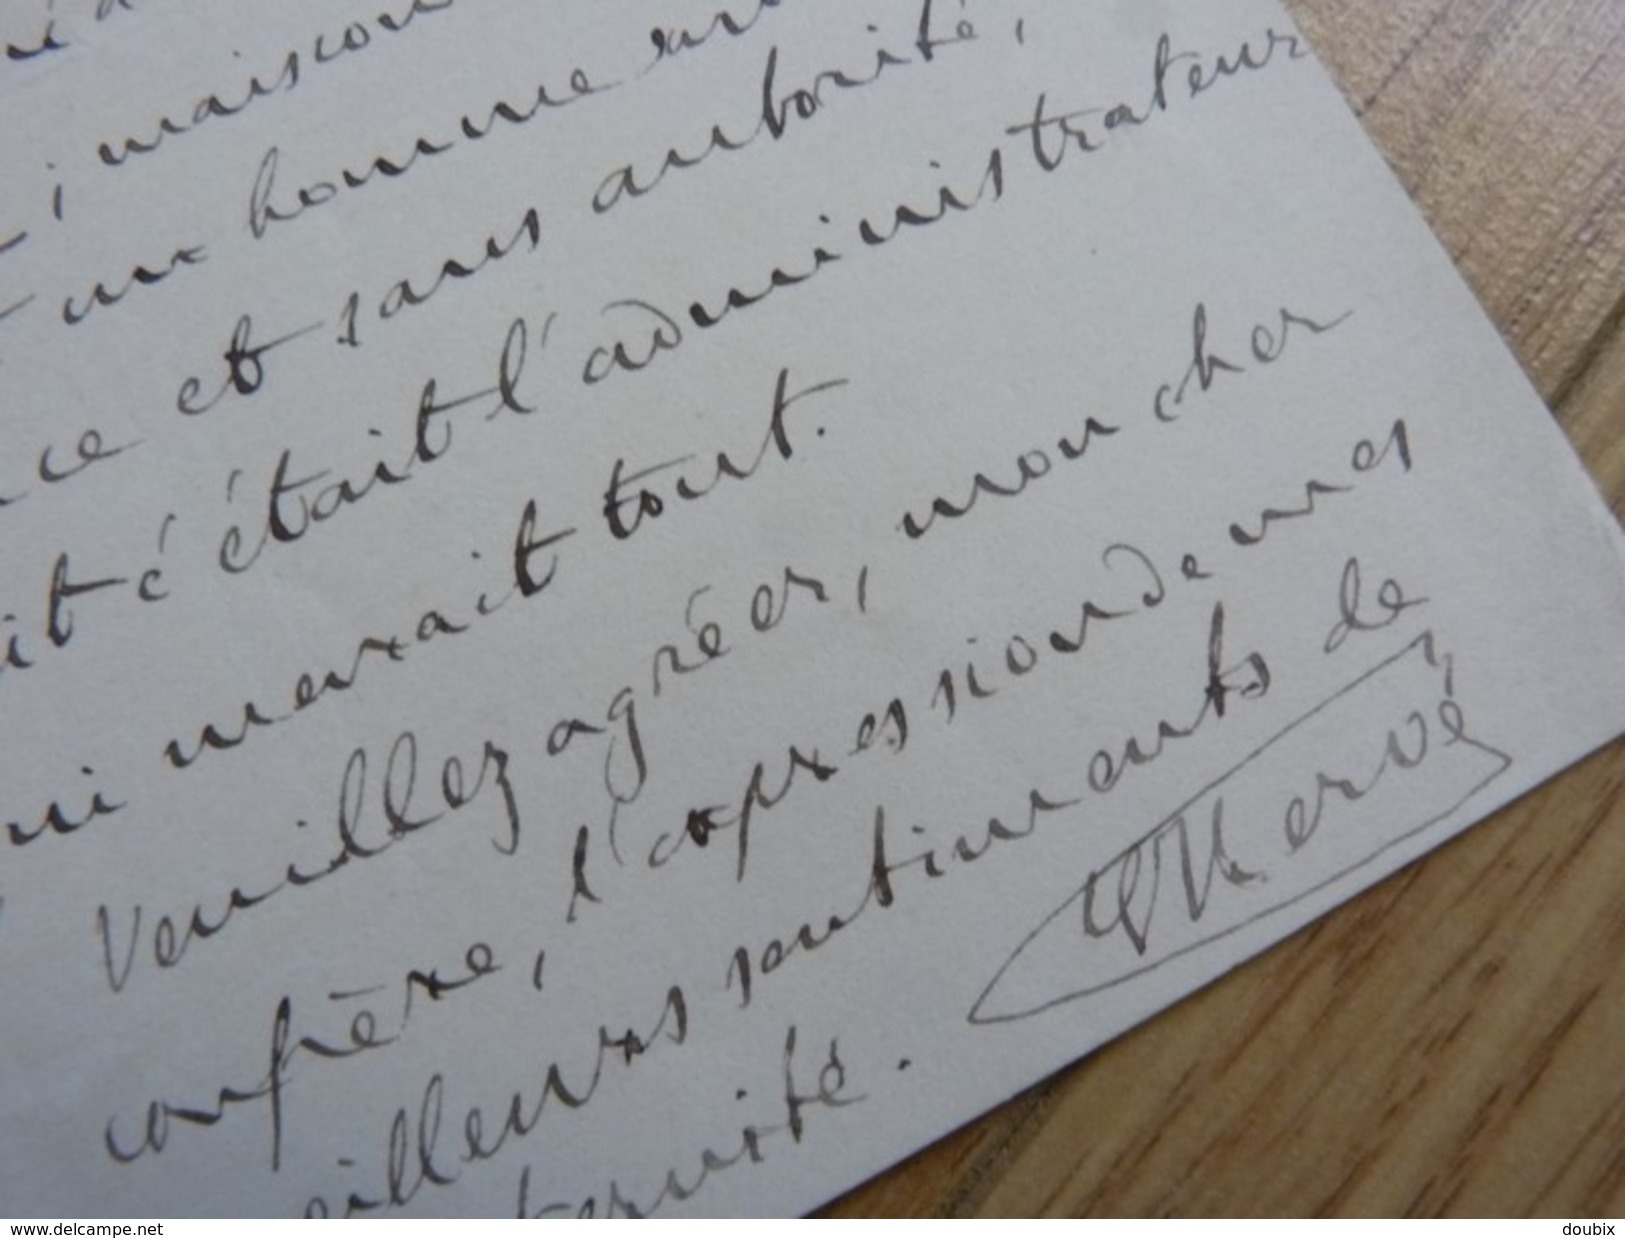 ; mais on
un homme sans
ce et sans autorité,
it c'était l'administrateur
ui menait tout.
Veuillez agréer, mon cher
confrère, l'expression de mes
eilleurs sentiments de
ternité.
Hervé
www.delcampe.net
doubix